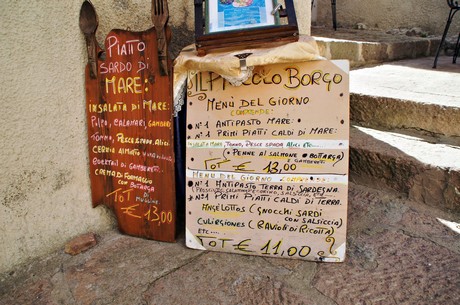 PIATTO
SARDO DI
MARE:
INSALATA DI MARE:
POLPO, CALAMARI, GAMBERI
TONNO, PESCE SPADA, ALICI
CREMA DI FORMAGGIO
CON BOTTARGA
DI
TOT € 13,00
IL PICCOLO BORGO
MENÙ DEL GIORNO
COMPRENDE:
N°1 ANTIPASTO MARE:
N°1 PRIMI PIATTI CALDI DI MARE:
INSALATA MARE, TONNO, PESCE SPADA ALICI ETC...
(PENNE AI SALMONE E BOTTARGA
TOT € 13,00
MENÙ DEL GIORNO
N°1 ANTIPASTO TERRA DI SARDEGNA
N°1 PRIMI PIATTI CALDI DI TERRA.
ANGELOTTOS / GNOCCHI SARDI
CON SALSICCIA)
CULIRGIONES (RAVIOLI DI RICOTTA)
ETC...
TOT € 11,00